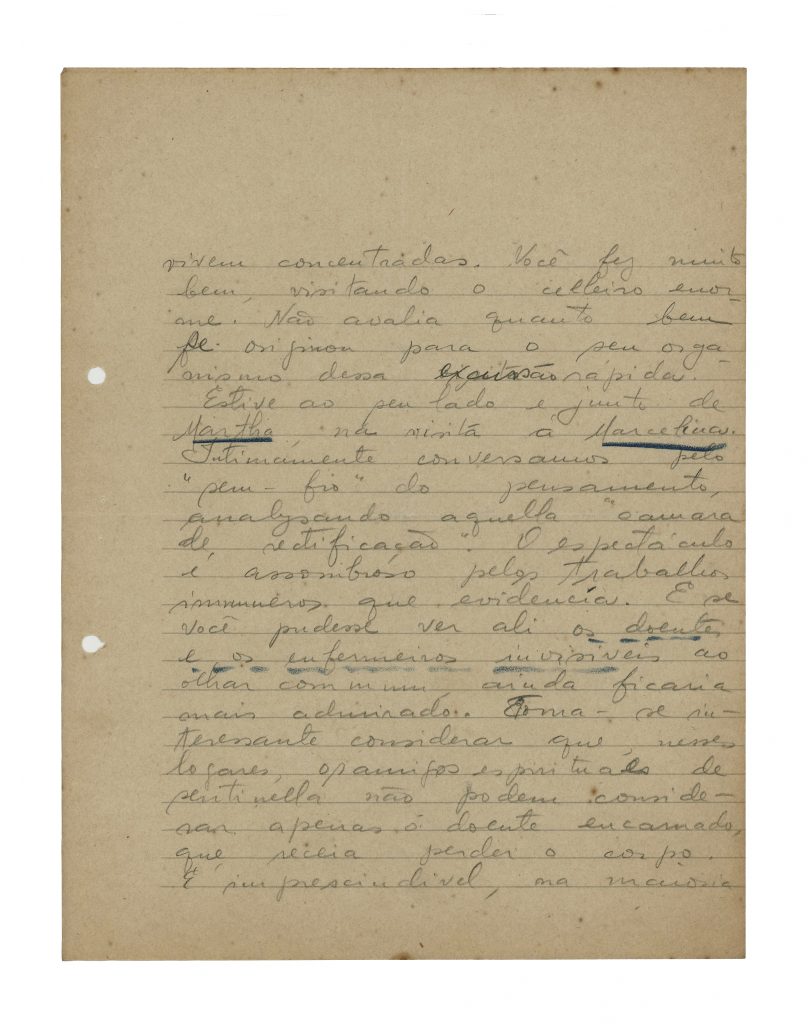 vivem concentradas. Você fez muito
bem, visitando o celleiro enor-
me. Não avalia quanto bem
se originou para o seu orga-
nismo dessa excursão rapida.
Estive ao seu lado e junto de
Martha, na visita á Marcelina.
Intimamente conversamos pelo
"sem-fio" do pensamento,
analysando aquella "camara
de rectificação". O espectáculo
é assombroso pelos trabalhos
innumeros que evidencia. E se
você pudesse ver ali os doentes
e os enfermeiros invisíveis ao
olhar commum, ainda ficaria
mais admirado. Torna-se in-
teressante considerar que, nesses
logares, os amigos espirituaes de
sentinella não podem conside-
rar apenas o doente encarnado,
que receia perder o corpo.
É imprescindivel, na maioria